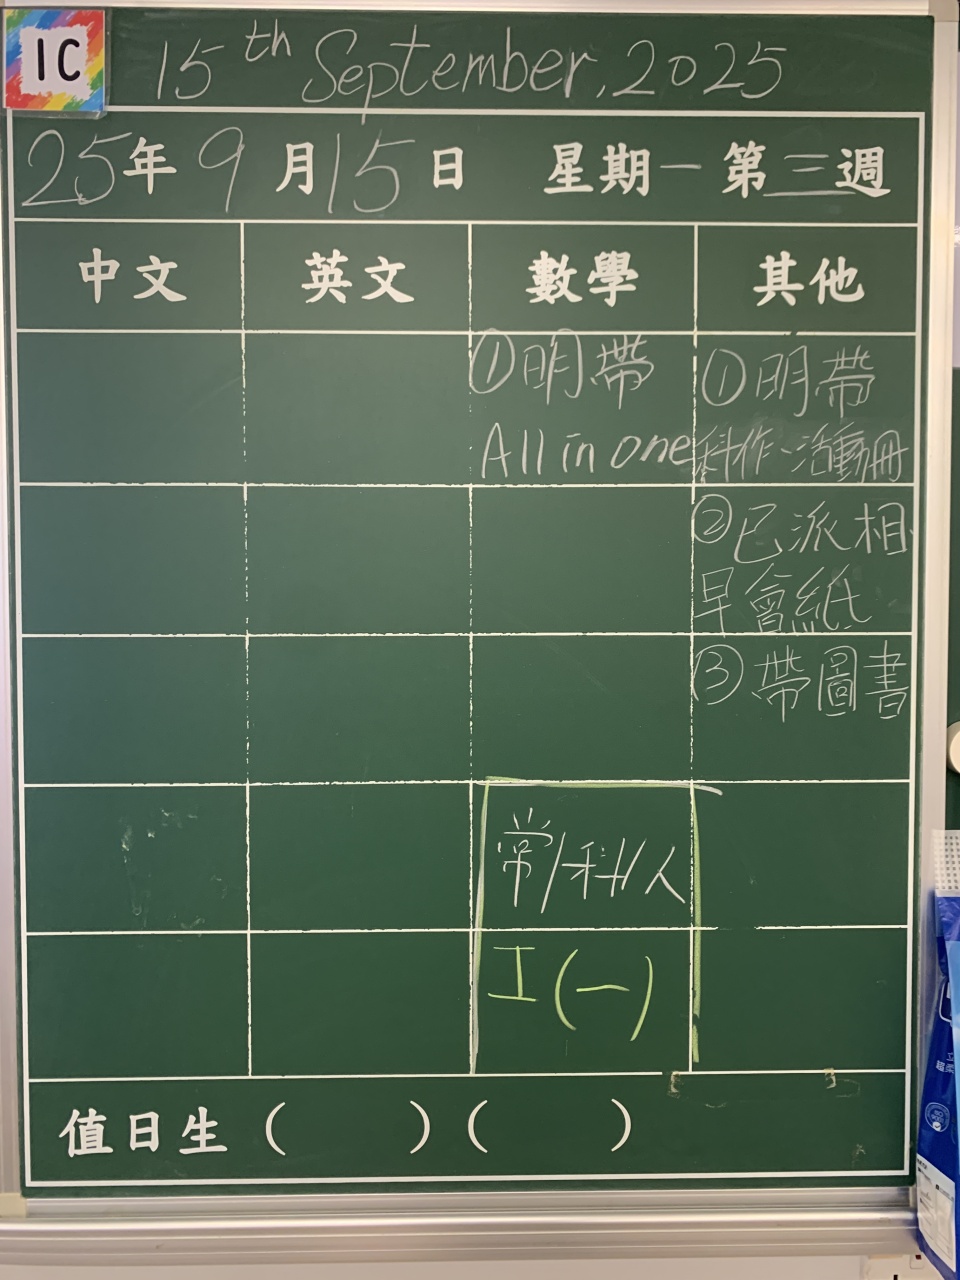 1C
15th September, 2025
25年9月15日 星期一 第三週
中文 英文 數學 其他
①明帶 ①明帶
All in one 科作、活動冊
②已派相
早會紙
③帶圖書
常/科/人
I(一)
值日生 ( ) ( )